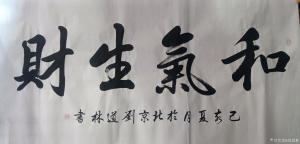 和氣生財
己亥夏月於北京劉道林書